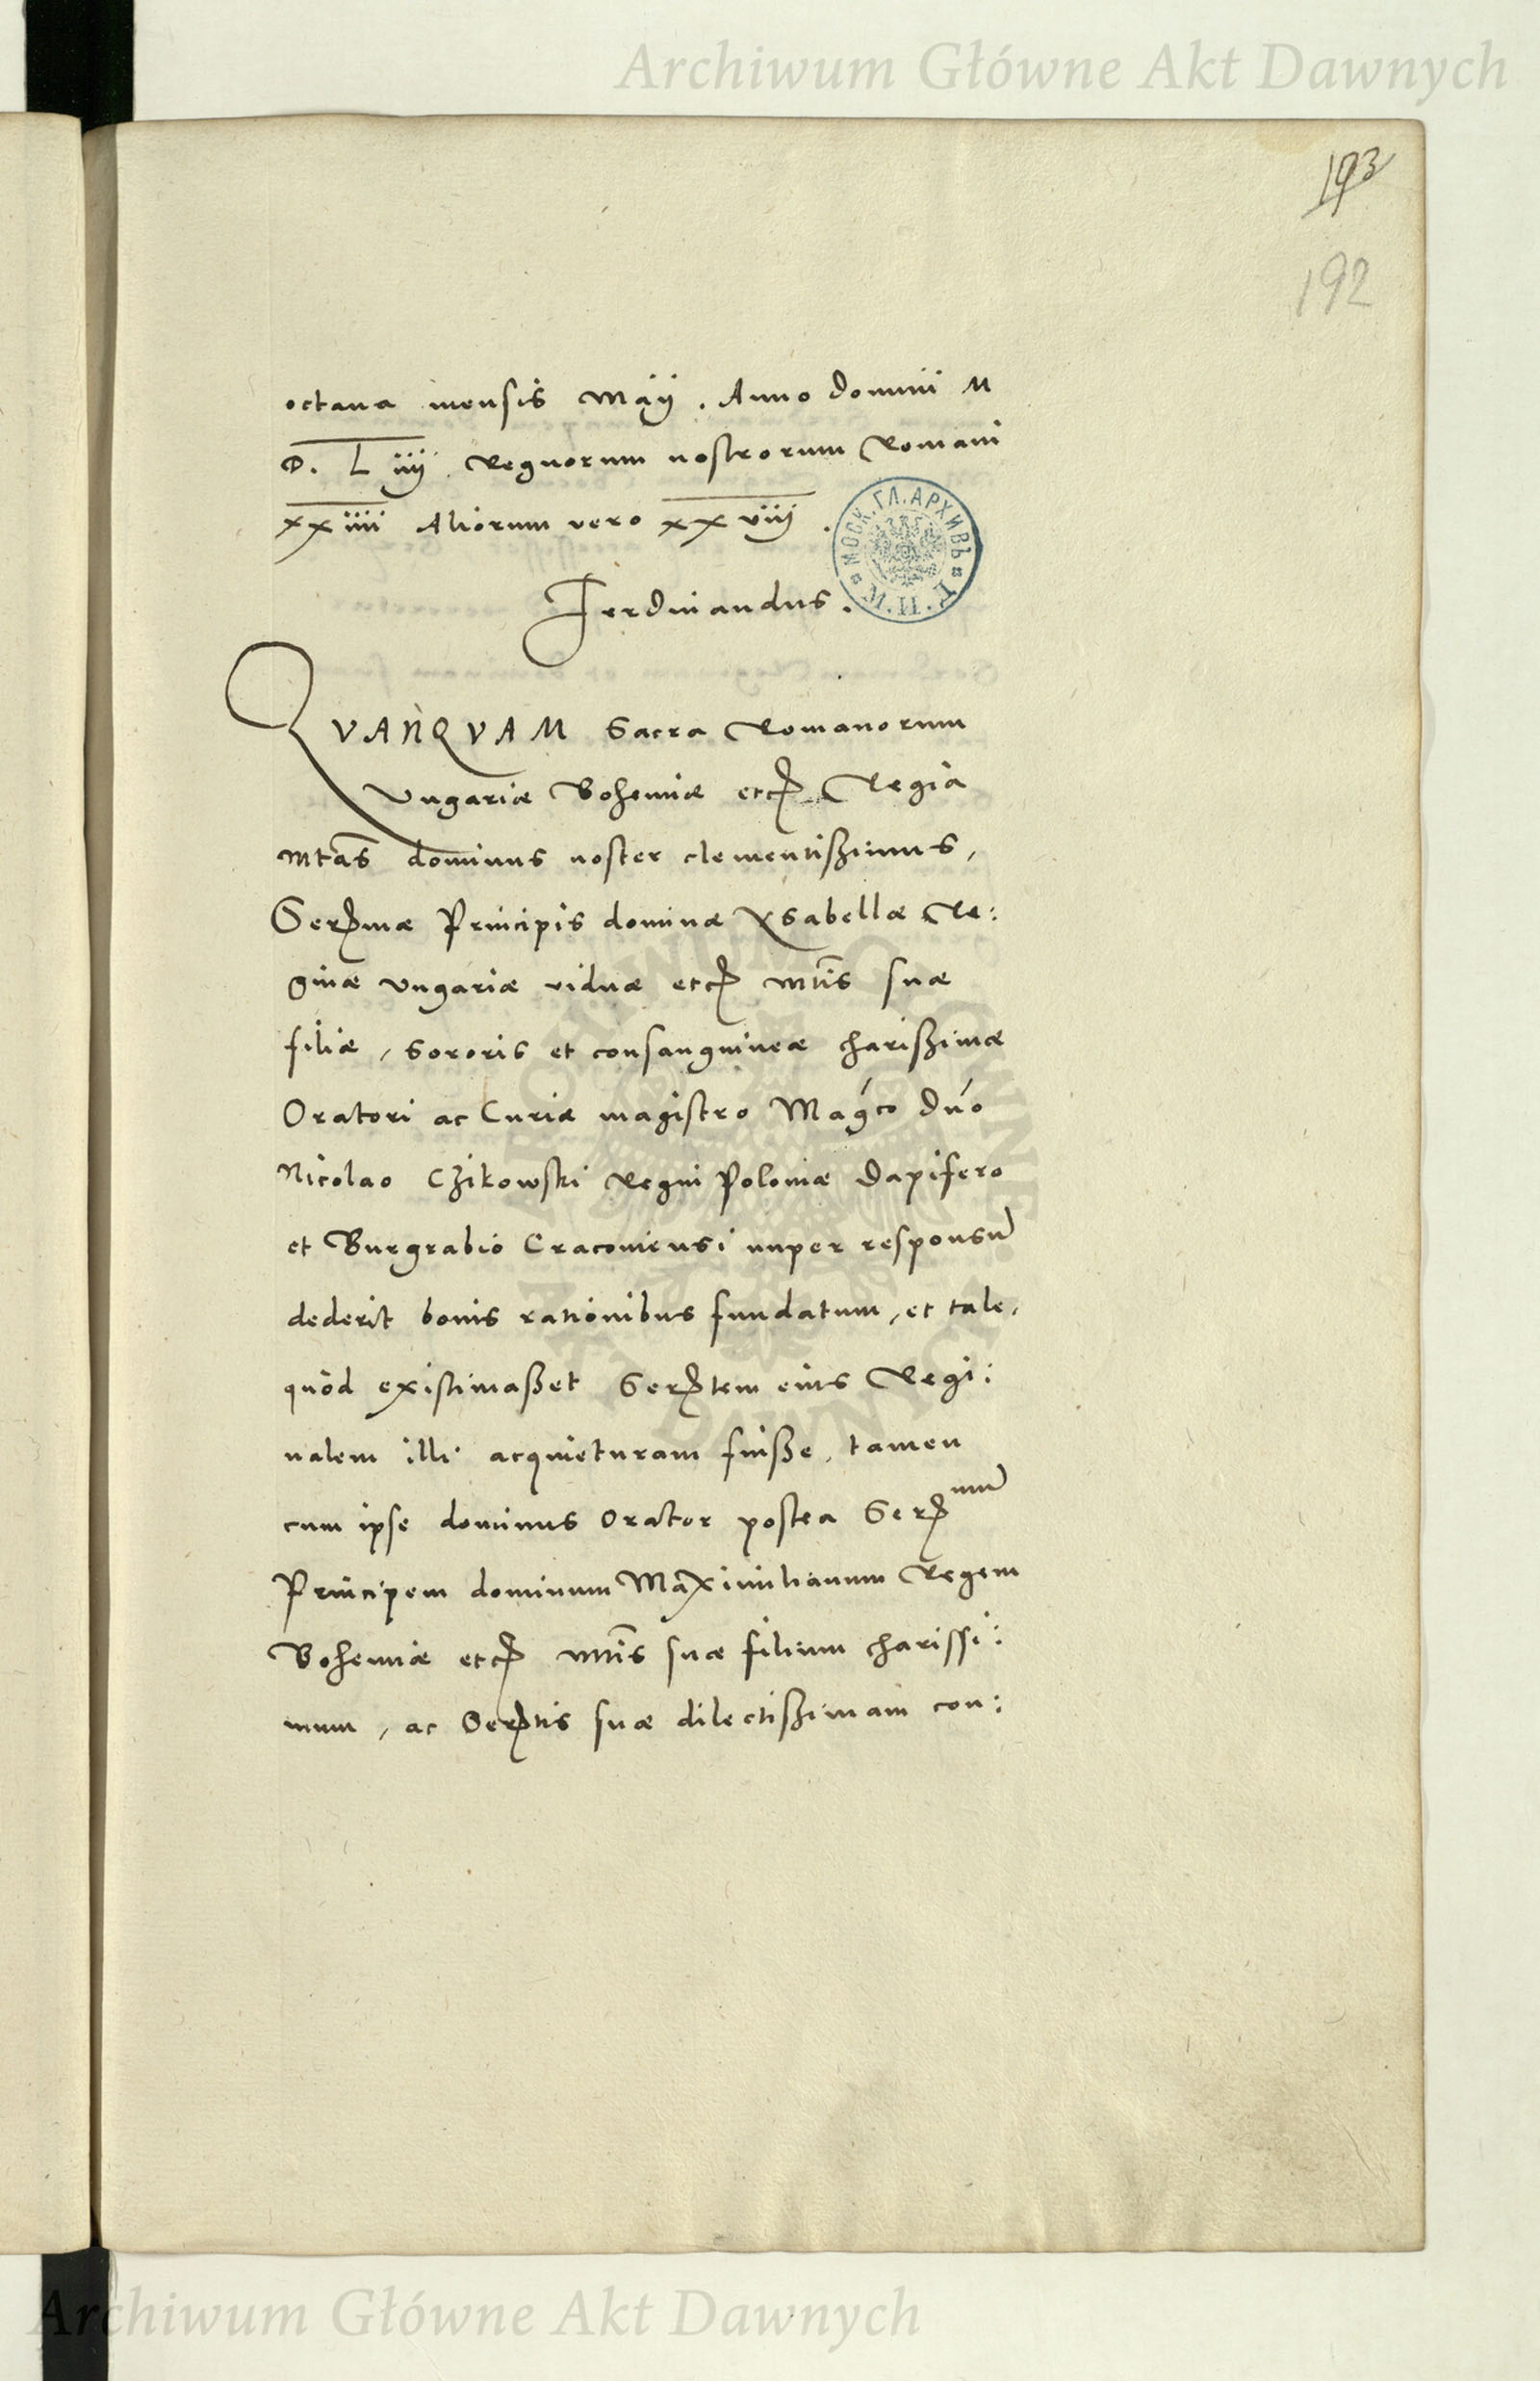 Archiwum Główne Akt Dawnych
193
192
octaua mensis Maÿ. Anno domini M
D. L iiij. Regnorum nostrorum Romani
xxiiii Aliorum vero xxviij.
МОСК. ГЛ. АРХИВЪ
М.И.Д.
Ferdinandus.
QVANQVAM Sacra Romanorum
Vngariæ Bohemiæ etcꝭ Regia
mtas̃ dominus noster clementißimus,
Serꝭmæ Principis dominæ Ysabellæ Re:
ginæ Vngariæ viduæ etcꝭ mtis̃ suæ
filiæ, sororis et consanguineæ charißimæ
Oratori ac Curiæ magistro Mag̃co dño
Nicolao Czikowski Regni Poloniæ dapifero
et Burgrabio Cracouiensi nuper responsũ
dederit bonis rationibus fundatum, et tale,
quòd existimaßet Serꝭtem eius Regi:
nalem illi acquieturam fuiße, tamen
cum ipse dominus Orator postea Serꝭmũ
Principem dominum Maximilianum Regem
Bohemiæ etcꝭ mtis̃ suæ filium charissi:
mum, ac Serꝭtis suæ dilectißimam con:
Archiwum Główne Akt Dawnych